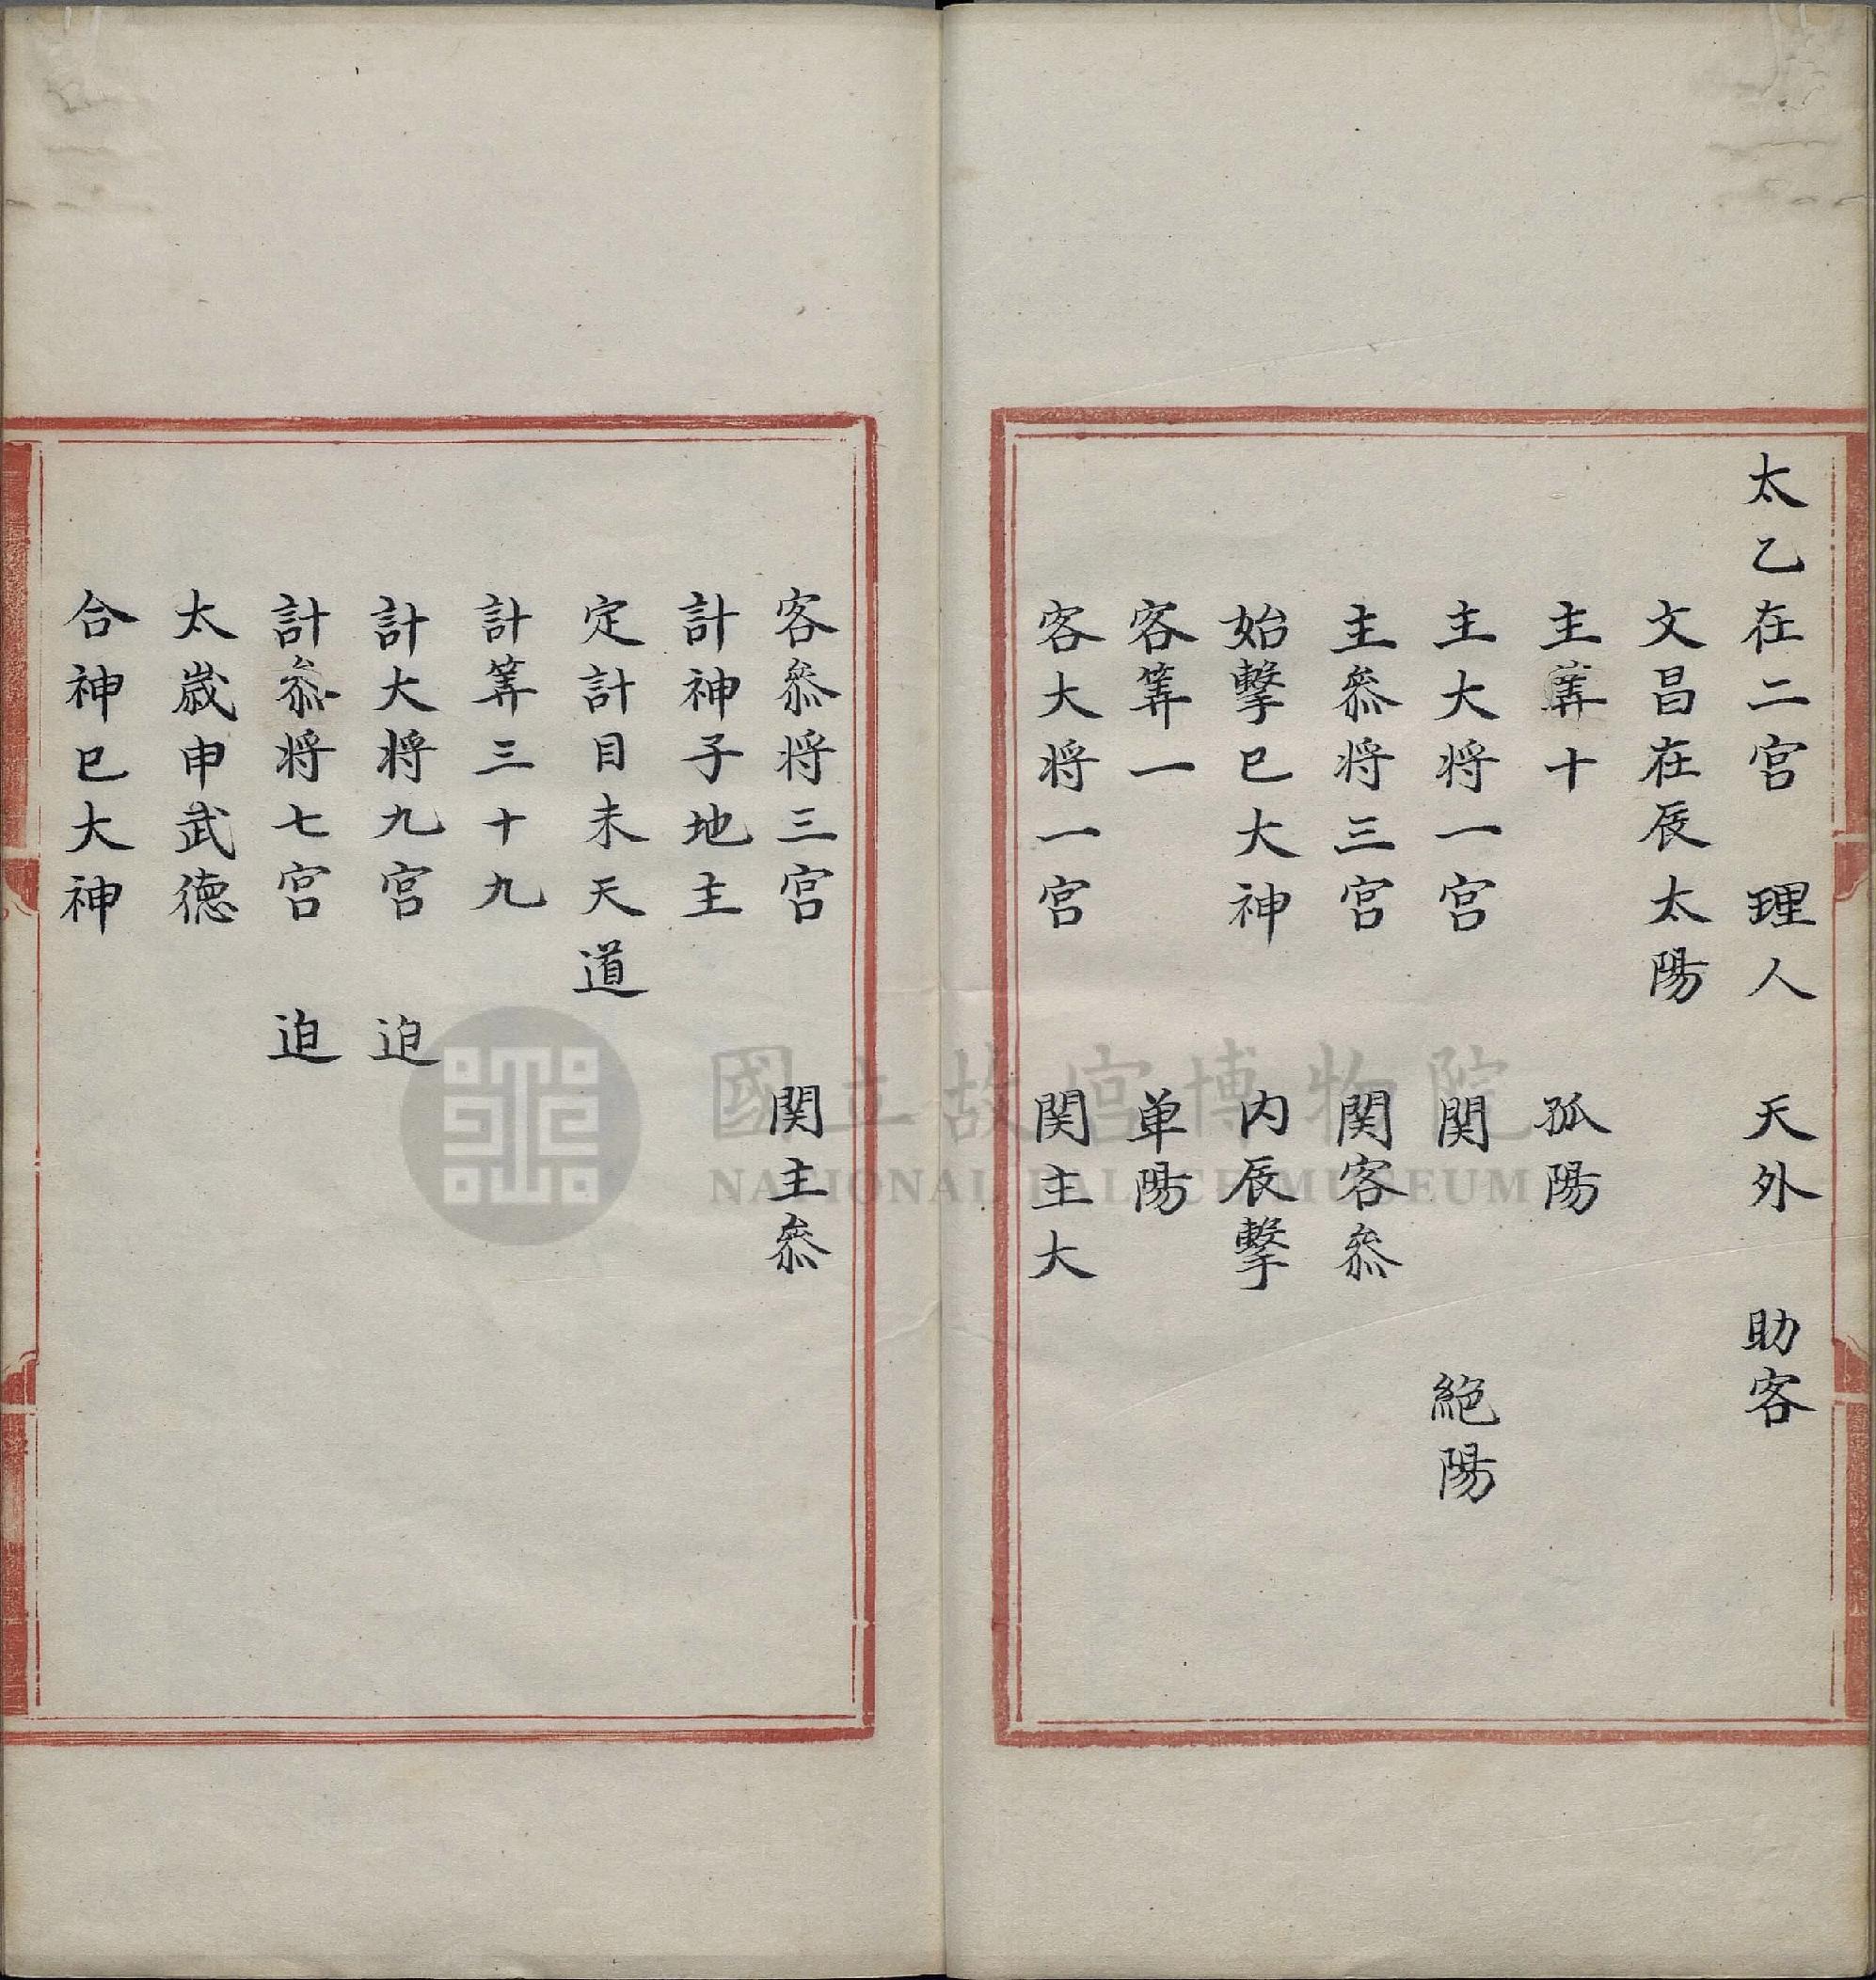 太乙在二宫　理人　天外　助客
文昌在辰太陽
主筭十　孤陽
主大将一宫　関　絶陽
主叅将三宫　関客叅
始擊巳大神　内辰擊
客筭一　单陽
客大将一宫　関主大
客叅将三宫　関主叅
計神子地主
定計目未天道
計筭三十九
計大将九宫　迫
計叅将七宫　迫
太歳申武德
合神巳大神
國立故宮博物院
NATIONAL PALACE MUSEUM